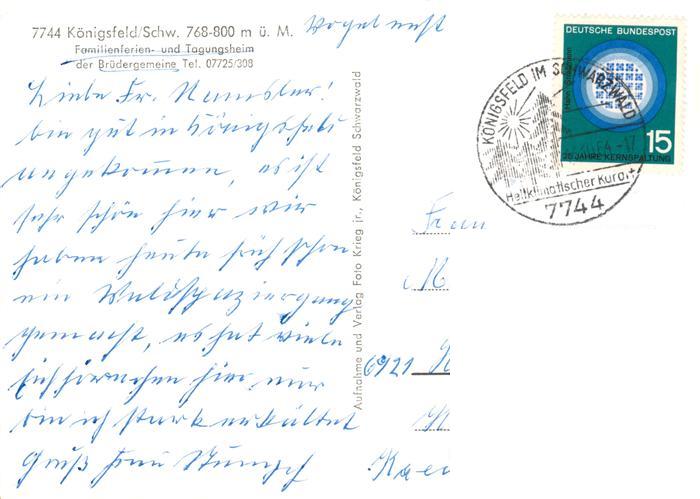 7744 Königsfeld/Schw. 768-800 m ü. M.
Familienferien- und Tagungsheim
der Brüdergemeine Tel. 07725/308
Liebe Fr.
bin gut in Königsfeld
angekommen, es ist
sehr schön hier wir
haben heute früh schon
ein Waldspaziergang
gemacht, es hat viele
hier, nur
bin ich stark erkältet
Gruß Frau
Aufnahme und Verlag Foto Krieg jr., Königsfeld Schwarzwald
DEUTSCHE BUNDESPOST
15
25 JAHRE KERNSPALTUNG
KÖNIGSFELD IM SCHWARZWALD
Heilklimatischer Kurort
7744
Frau
6921